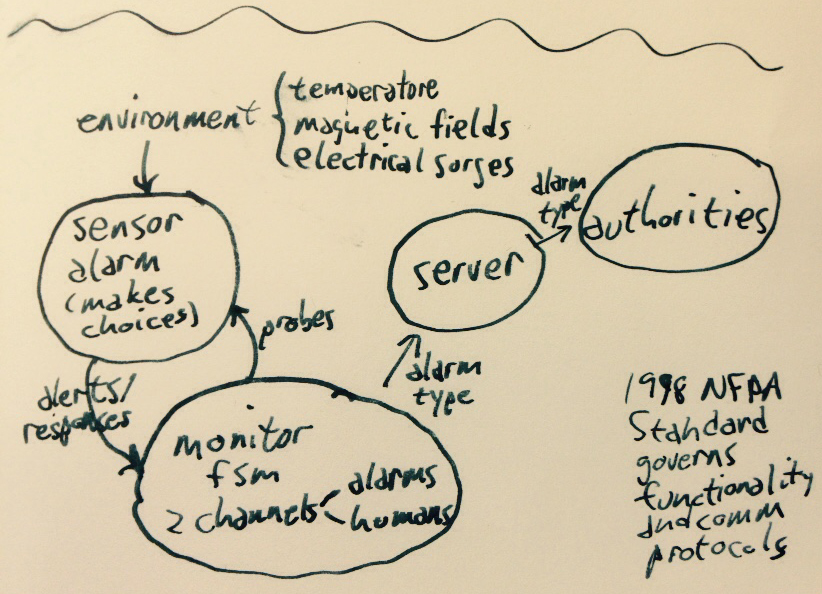 environment
temperatore
magnetic fields
electrical surges
sensor
alarm
(makes
choices)
probes
alerts/
responses
monitor
fsm
2 channels
alarms
humans
alarm
type
server
alarm
type
authorities
1998 NFPA
Standard
governs
functionality
and comm
protocols